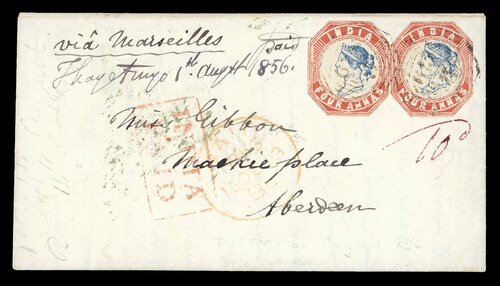 viâ Marseilles
paid
Thayetmyo 1st Augst 1856.
INDIA
FOUR ANNAS
INDIA
FOUR ANNAS
Miss Gibbon
Mackie place
Aberdeen
INDIA
PAID
10d